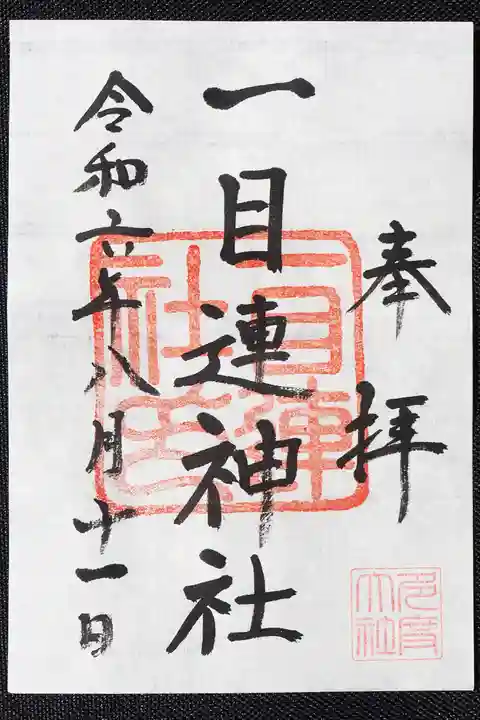 奉拝
一目連神社
令和六年八月十一日
一目連
多度
大社